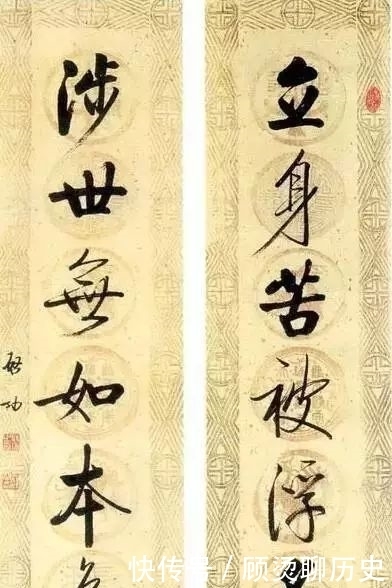 立身苦被浮
涉世無如本
啟功
快传号／顾烫聊历史